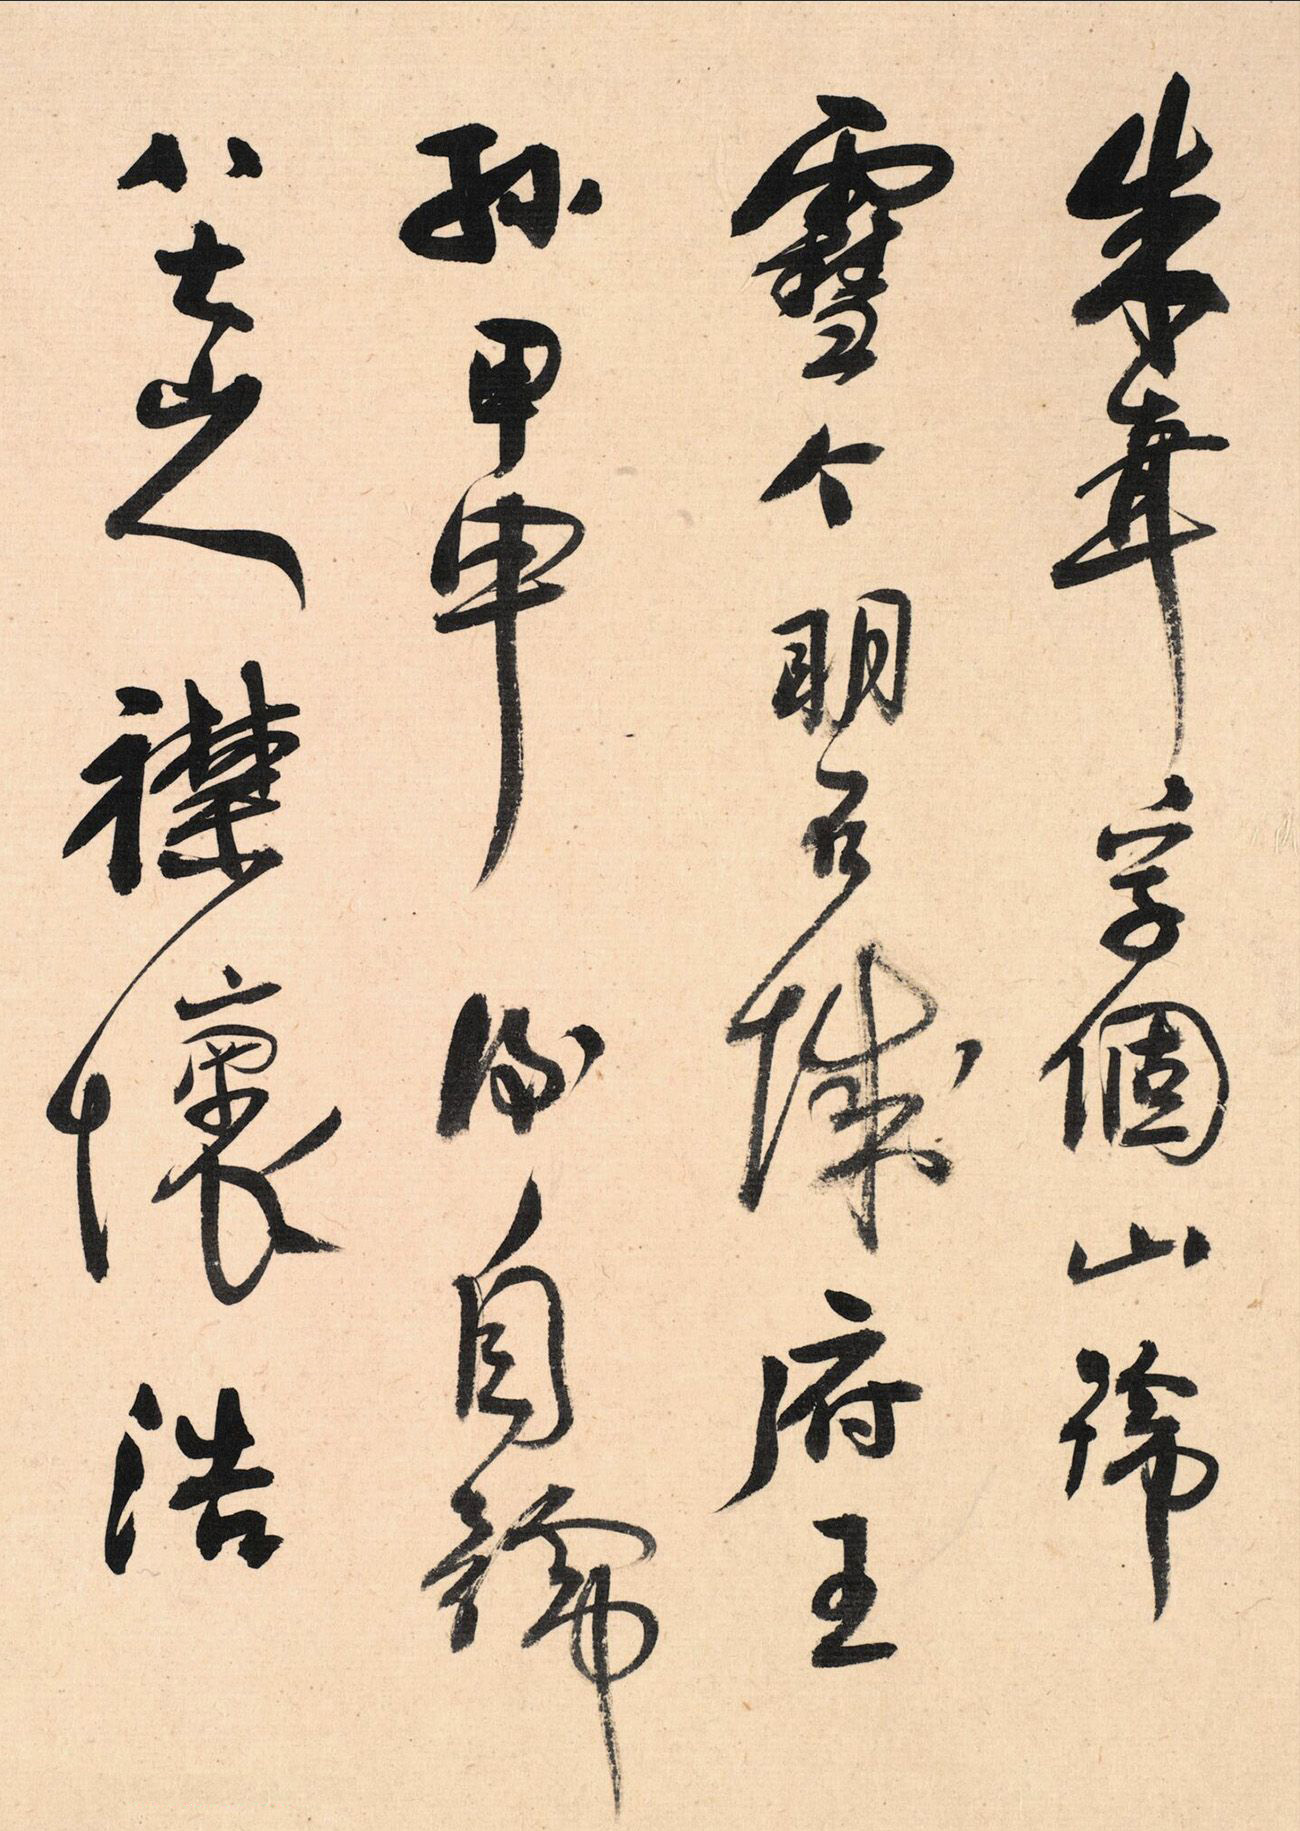 朱耷字個山號
雪个明石城府王
孫甲申後自號
八大山人襟懷浩